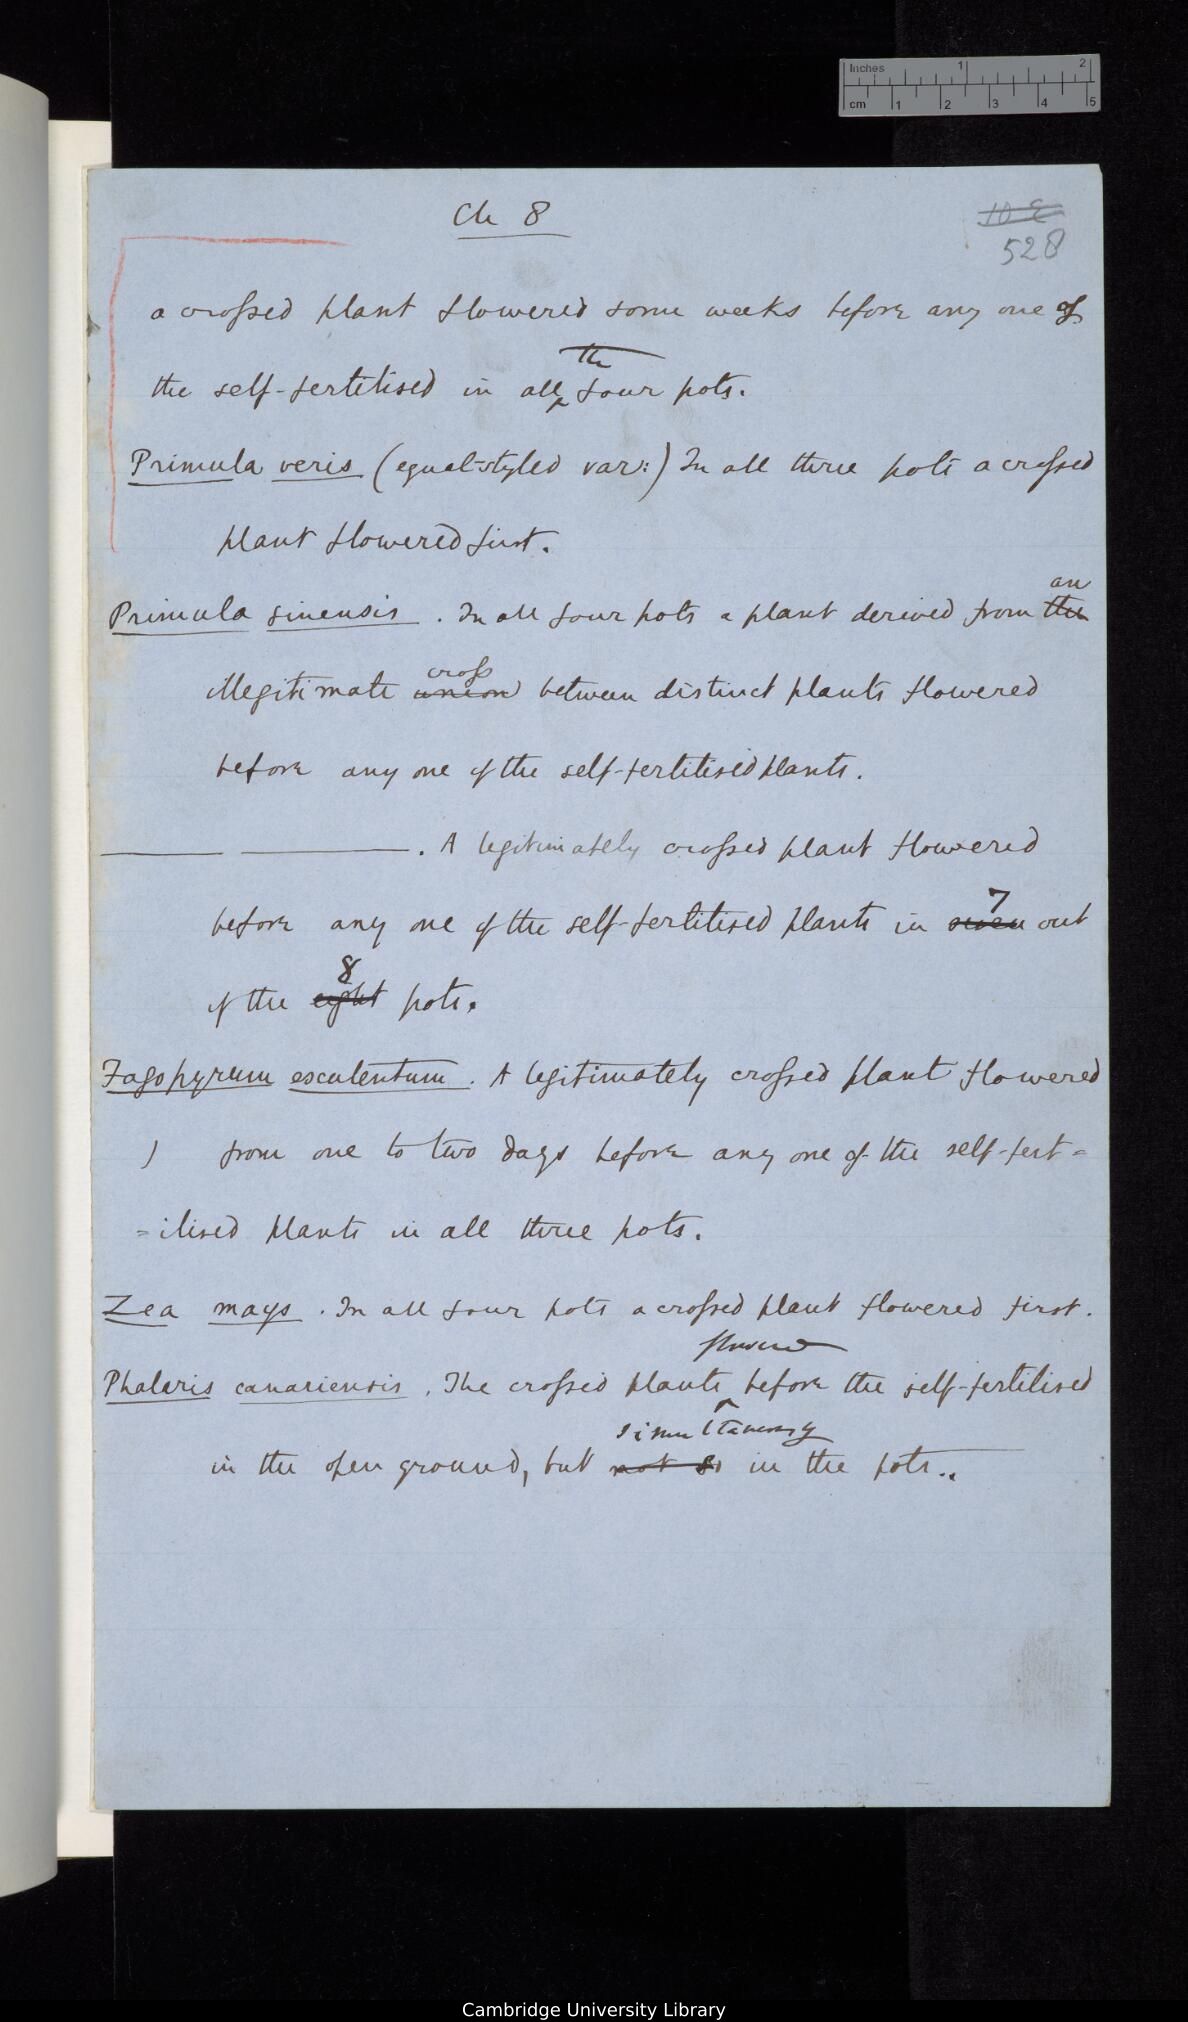 Inches 1 2
cm 1 2 3 4 5
Ch 8
528
a crossed plant flowered some weeks before any one of
the
the self-fertilised in all four pots.
Primula veris (equal-styled var:) In all three pots a crossed
plant flowered first.
an
Primula sinensis. In all four pots a plant derived from the
cross
illegitimate union between distinct plants flowered
before any one of the self-fertilised plants.
. A legitimately crossed plant flowered
7
before any one of the self-fertilised plants in seven out
8
of the eight pots.
Fagopyrum esculentum. A legitimately crossed plant flowered
) from one to two days before any one of the self-fert=
=ilised plants in all three pots.
Zea mays. In all four pots a crossed plant flowered first.
flowered
Phalaris canariensis. The crossed plants before the self-fertilised
simultaneously
in the open ground, but not so in the pots..
Cambridge University Library